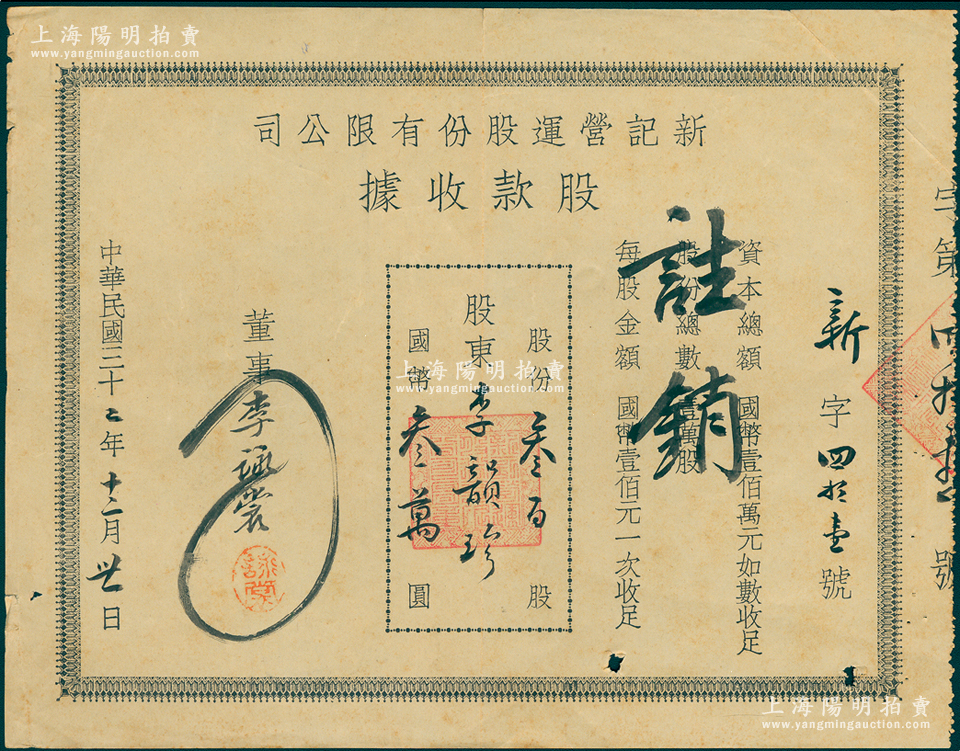 上海陽明拍賣
www.yangmingauction.com
新記營運股份有限公司
股款收據
字第四拾號
新字四拾壹號
資本總額 國幣壹佰萬元如數收足
股份總數 壹萬股
每股金額 國幣壹佰元一次收足
註銷
股分叁百股
股東李韻珍
國幣叁萬圓
董事李詠裳
詠裳
中華民國三十二年十二月廿日
上海陽明拍賣
www.yangmingauction.com
上海陽明拍賣
www.yangmingauction.com
上海陽明拍賣
www.yangmingauction.com
上海陽明拍賣
www.yangmingauction.com